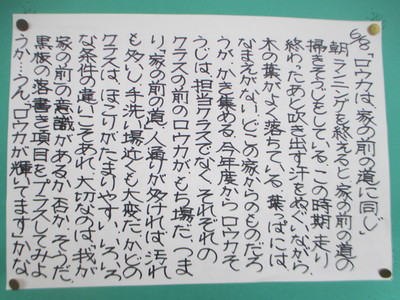 6/8「ロウカは、家の前の道に同じ」
朝ランニングを終えると家の前の道の
掃きそうじをしている。この時期、走り
終わったあと吹き出す汗をぬぐいながら。
木の葉がよく落ちている。葉っぱには、
なまえがない。どこの家からのものだろ
うが、かき集める。今年度からロウカそ
うじは、担当クラスでなく、それぞれの
クラスの前のロウカが、もち場だ。つま
り「家の前の道」人通りが多ければ、汚れ
も多い。手洗い場近くも大変だ。かどの
クラスは、ほこりがたまりやすい。いろいろ
な条件の違いこそあれ、大切なのは、我が
家の前の意識があるか否か。そうだ、
黒板の落書き項目をプラスしてみよ
うか…うん。「ロウカが輝いてます」かな。